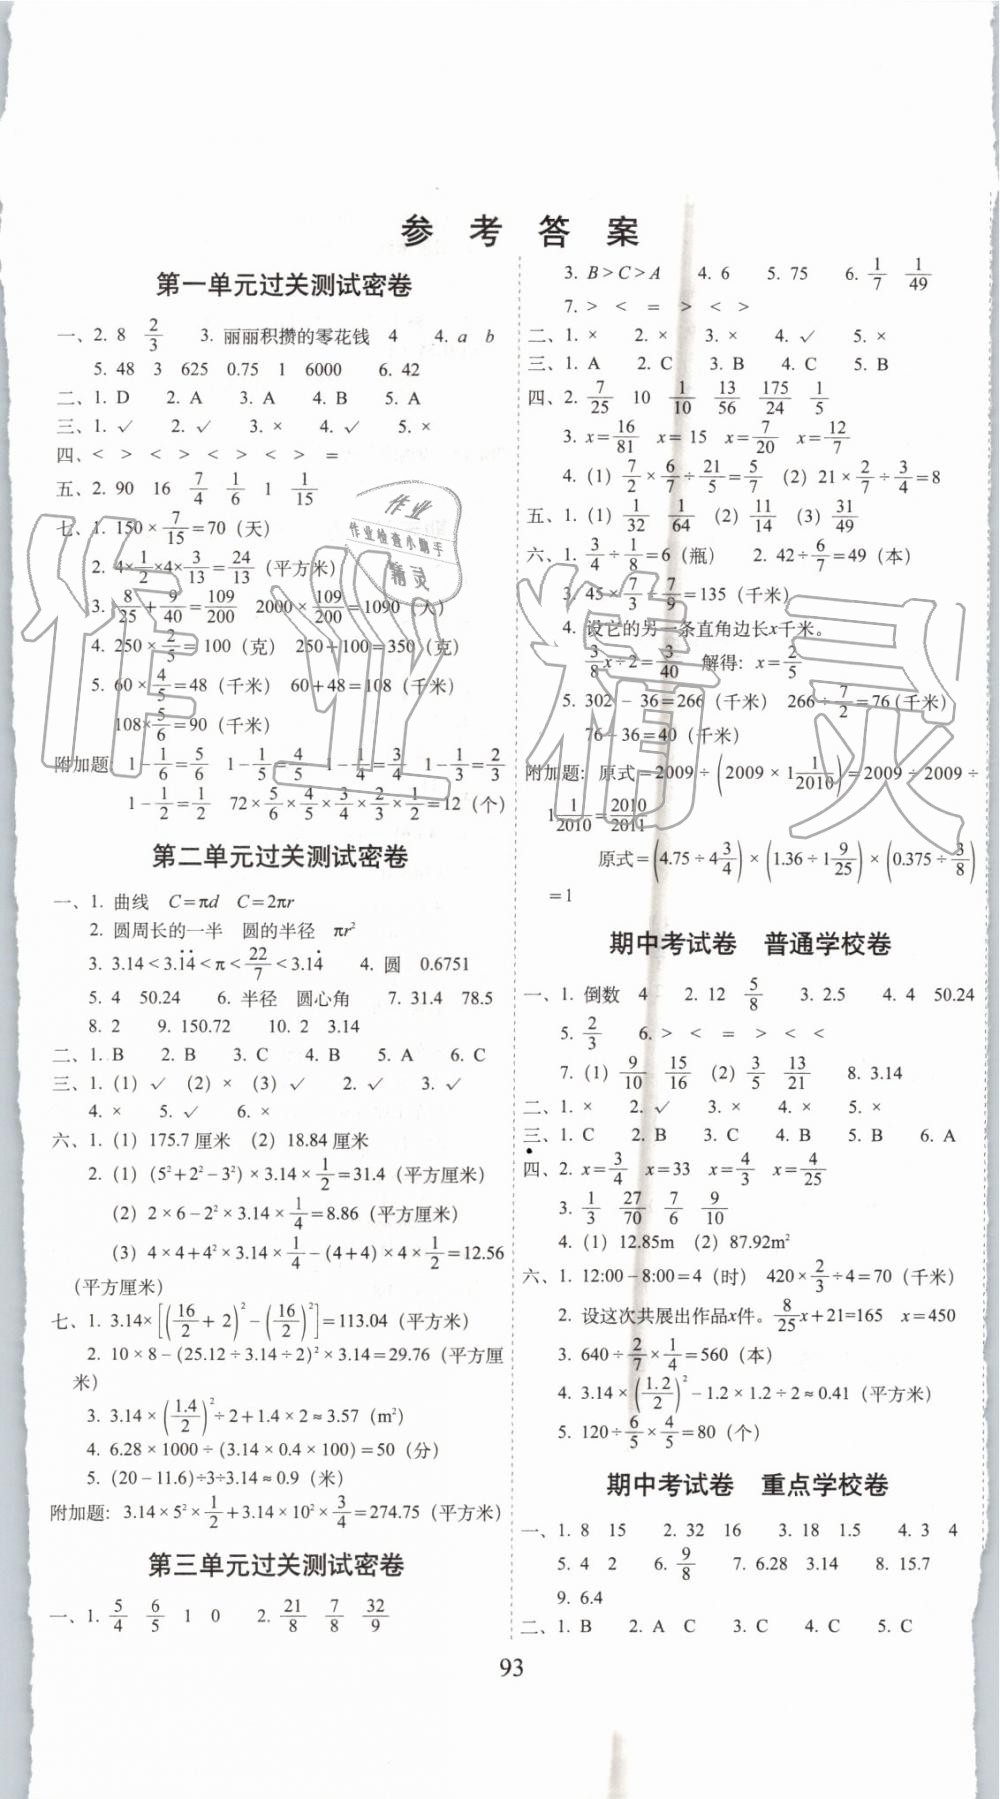 参 考 答 案
第一单元过关测试密卷
一、2. 8 2/3 3. 丽丽积攒的零花钱 4 4. a b
5. 48 3 625 0.75 1 6000 6. 42
二、1. D 2. A 3. A 4. B 5. A
三、1. ✓ 2. ✓ 3. × 4. ✓ 5. ×
四、< > < > < > < > =
五、2. 90 16 7/4 1/6 1 1/15
七、1. 150×7/15=70（天）
2. 4×1/2×4×3/13=24/13（平方米）
3. 8/25+9/40=109/200 2000×109/200=1090（人）
4. 250×2/5=100（克） 250+100=350（克）
5. 60×4/5=48（千米） 60+48=108（千米）
108×5/6=90（千米）
附加题: 1-1/6=5/6 1-1/5=4/5 1-1/4=3/4 1-1/3=2/3
1-1/2=1/2 72×5/6×4/5×3/4×2/3×1/2=12（个）
第二单元过关测试密卷
一、1. 曲线 C=πd C=2πr
2. 圆周长的一半 圆的半径 πr²
3. 3.14<3.1̇4̇<π<22/7<3.14̇ 4. 圆 0.6751
5. 4 50.24 6. 半径 圆心角 7. 31.4 78.5
8. 2 9. 150.72 10. 2 3.14
二、1. B 2. B 3. C 4. B 5. A 6. C
三、1. (1) ✓ (2) × (3) ✓ 2. ✓ 3. ✓
4. × 5. ✓ 6. ×
六、1. (1) 175.7厘米 (2) 18.84厘米
2. (1) (5²+2²-3²)×3.14×1/2=31.4（平方厘米）
(2) 2×6-2²×3.14×1/4=8.86（平方厘米）
(3) 4×4+4²×3.14×1/4-(4+4)×4×1/2=12.56
（平方厘米）
七、1. 3.14×[(16/2+2)²-(16/2)²]=113.04（平方米）
2. 10×8-(25.12÷3.14÷2)²×3.14=29.76（平方厘
米）
3. 3.14×(1.4/2)²÷2+1.4×2≈3.57（m²）
4. 6.28×1000÷(3.14×0.4×100)=50（分）
5. (20-11.6)÷3÷3.14≈0.9（米）
附加题: 3.14×5²×1/2+3.14×10²×3/4=274.75（平方米）
第三单元过关测试密卷
一、1. 5/4 6/5 1 0 2. 21/8 7/8 32/9
3. B>C>A 4. 6 5. 75 6. 1/7 1/49
7. > < = > < >
二、1. × 2. × 3. × 4. ✓ 5. ×
三、1. A 2. C 3. B 4. C 5. B
四、2. 7/25 10 1/10 13/56 175/24 1/5
3. x=16/81 x=15 x=7/20 x=12/7
4. (1) 7/2×6/7÷21/5=5/7 (2) 21×2/7÷3/4=8
五、1. (1) 1/32 1/64 (2) 11/14 (3) 31/49
六、1. 3/4÷1/8=6（瓶） 2. 42÷6/7=49（本）
3. 45×7/3÷7/9=135（千米）
4. 设它的另一条直角边长x千米。
3/8x÷2=3/40 解得: x=2/5
5. 302-36=266（千米） 266÷7/2=76（千米）
76-36=40（千米）
附加题: 原式=2009÷(2009×1 1/2010)=2009÷2009÷
1 1/2010=2010/2011
原式=(4.75÷4 3/4)×(1.36÷1 9/25)×(0.375÷3/8)
=1
期中考试卷 普通学校卷
一、1. 倒数 4 2. 12 5/8 3. 2.5 4. 4 50.24
5. 2/3 6. > < = > < <
7. (1) 9/10 15/16 (2) 3/5 13/21 8. 3.14
二、1. × 2. ✓ 3. × 4. × 5. ×
三、1. C 2. B 3. C 4. B 5. B 6. A
四、2. x=3/4 x=33 x=4/3 x=4/25
3. 1/3 27/70 7/6 9/10
4. (1) 12.85m (2) 87.92m²
六、1. 12:00-8:00=4（时） 420×2/3÷4=70（千米）
2. 设这次共展出作品x件。8/25x+21=165 x=450
3. 640÷2/7×1/4=560（本）
4. 3.14×(1.2/2)²-1.2×1.2÷2≈0.41（平方米）
5. 120÷6/5×4/5=80（个）
期中考试卷 重点学校卷
一、1. 8 15 2. 32 16 3. 18 1.5 4. 3 4
5. 4 2 6. 9/8 7. 6.28 3.14 8. 15.7
9. 6.4
二、1. B 2. A C 3. C 4. C 5. C
93
作业
作业检查小助手
精灵
作业精灵